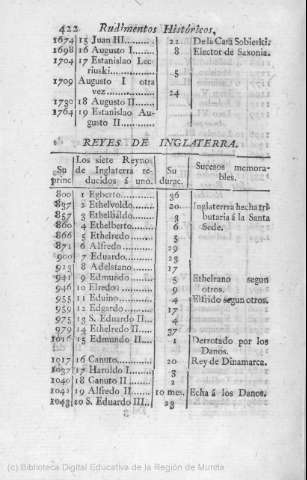 422 Rudimentos Históricos.
1674 15 Juan III......... 22 De la Casa Sobieski.
1698 16 Augusto I....... 8 Elector de Saxonia.
1704 17 Estanislao Lec-
riuski........... 5
1709 Augusto I otra
vez............ 24
1730 18 Augusto II......
1764 19 Estanislao Au-
gusto II........
REYES DE INGLATERRA.
Su princ. Los siete Reynos de Inglaterra reducidos á uno. Su durac. Sucesos memorables.
800 1 Egberto......... 36
837 2 Ethelvoldo...... 20 Inglaterra hecha tri-
857 3 Ethelbaldo...... 3 butaria á la Santa
860 4 Ethelberto...... 6 Sede.
866 5 Ethelredo....... 5
871 6 Alfredo......... 29
900 7 Eduardo........ 23
923 8 Adelstano....... 17
941 9 Edmundo....... 5 Ethelrano segun
946 10 Elredo.......... 9 otros.
955 11 Eduino......... 4 Elfrido segun otros.
959 12 Edgardo........ 17
975 13 S. Eduardo II... 4
979 14 Ethelredo II..... 37
1016 15 Edmundo II..... 1 Derrotado por los
Danos.
1017 16 Canuto.......... 20 Rey de Dinamarca.
1037 17 Haroldo I........ 3
1040 18 Canuto II........ 2
1042 19 Alfredo II....... 10 mes. Echa á los Danos.
1043 20 S. Eduardo III.. 23
(c) Biblioteca Digital Educativa de la Región de Murcia